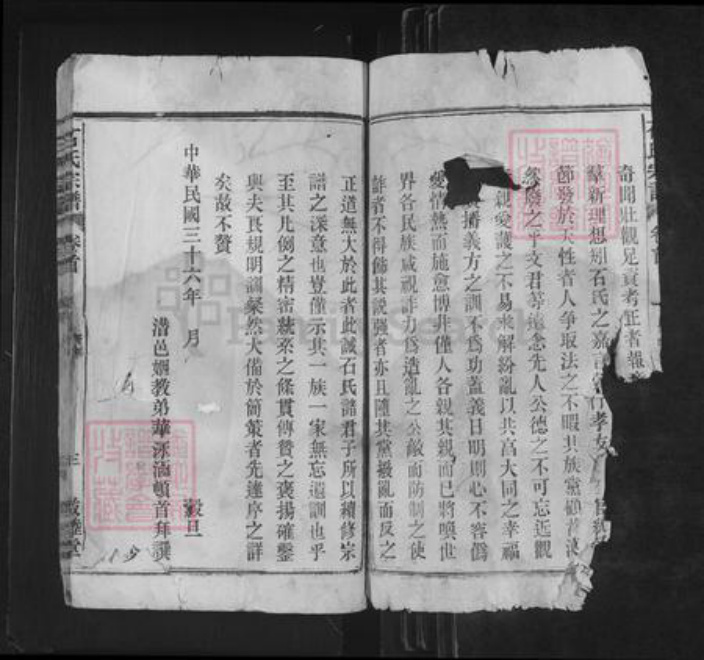 奇聞壯觀足資考正者報
新理想矧石氏之嘉言 行孝友
節發於天性者人爭取法之不暇其族黨顧若漠
然廢之乎文君等遠念先人公德之不可忘近觀
親愛護之不易來解紛亂以共高大同之幸福
播義方之訓不為功蓋義日明則心不容僞
愛情熱而施愈博非僅人各親其親而已將喚世
界各民族咸視詐力為造亂之公敵而防制之使
詐者不得飾其說強者亦且隨其黨撥亂而反之
正道無大於此者此誠石氏諸君子所以續修宗
譜之深意也豈僅示其一族一家無忘遺訓也乎
至其凡例之精密統系之條貫傳贊之褒揚確鑿
與夫良規明訓粲然大備於簡策者先達序之詳
矣故不贅
中華民國三十六年 月 穀旦
潛邑姻教弟華 涵頓首拜譔
石氏宗譜 卷首
敦睦堂
FamilySearch